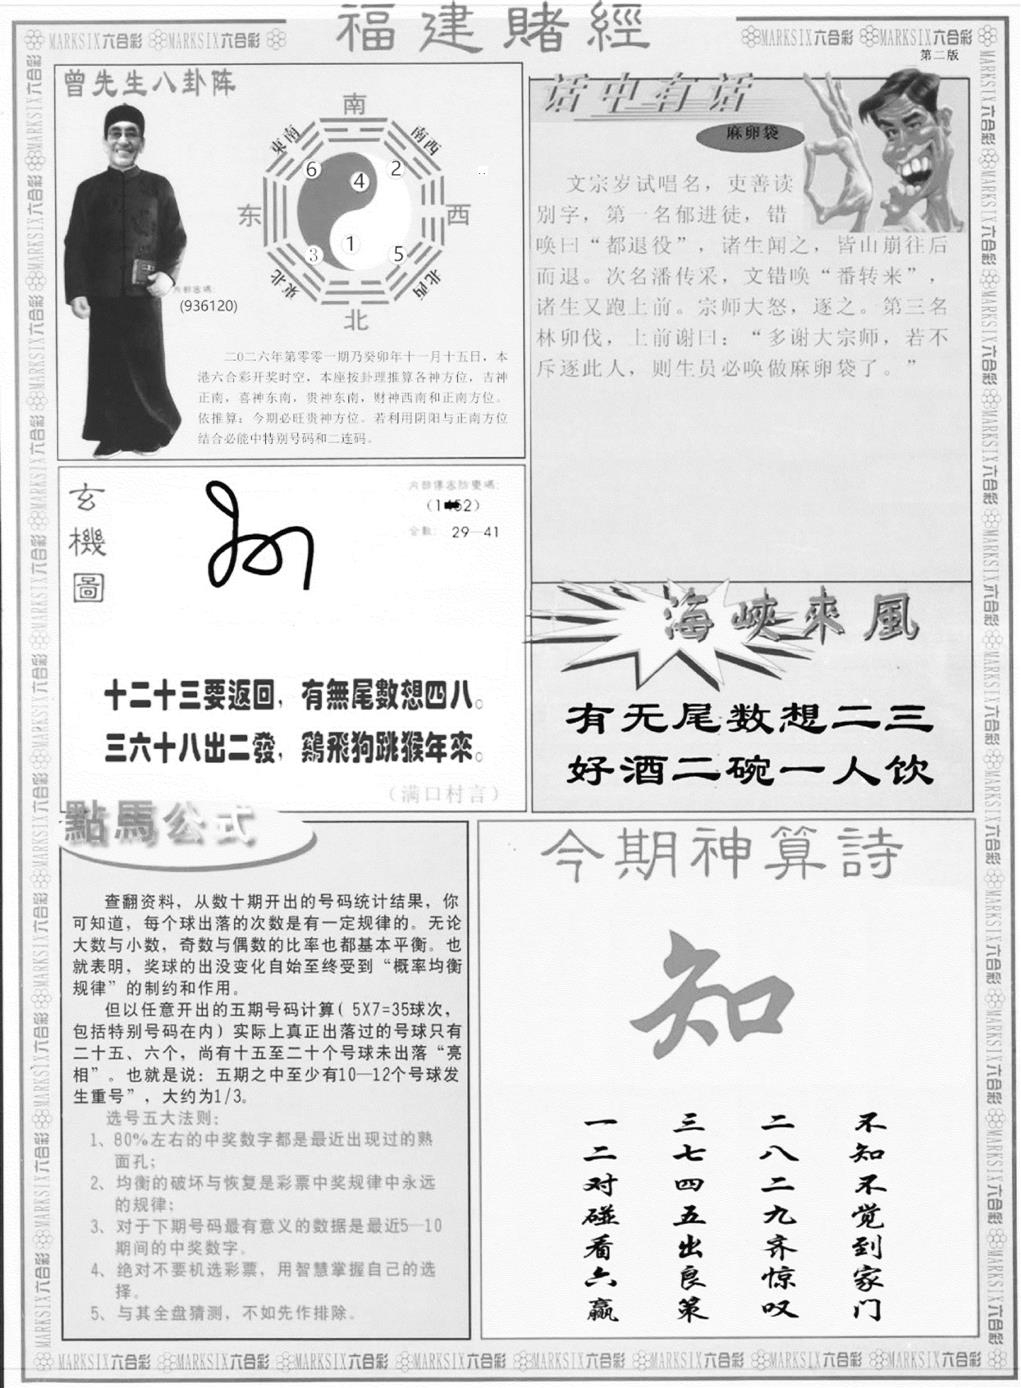 福建賭經
MARKSIX六合彩 MARKSIX六合彩
MARKSIX六合彩 MARKSIX六合彩
第二版
曾先生八卦阵
南
東南 南西
6 4 2
东 西
3 1 5
東北 北西
北
(936120)
二0二六年第零零一期乃癸卯年十一月十五日，本
港六合彩开奖时空，本座按卦理推算各神方位，吉神
正南，喜神东南，贵神东南，财神西南和正南方位。
依推算：今期必旺贵神方位。若利用阴阳与正南方位
结合必能中特别号码和二连码。
话中有话
麻卵袋
文宗岁试唱名，吏善读
别字，第一名郁进徒，错
唤曰“都退役”，诸生闻之，皆山崩往后
而退。次名潘传采，文错唤“番转来”，
诸生又跑上前。宗师大怒，逐之。第三名
林卯伐，上前谢曰：“多谢大宗师，若不
斥逐此人，则生员必唤做麻卵袋了。”
玄機圖
29—41
十二十三要返回，有無尾數想四八。
三六十八出二發，鷄飛狗跳猴年來。
（满口村言）
海峽來風
有无尾数想二三
好酒二碗一人饮
點馬公式
查翻资料，从数十期开出的号码统计结果，你
可知道，每个球出落的次数是有一定规律的。无论
大数与小数，奇数与偶数的比率也都基本平衡。也
就表明，奖球的出没变化自始至终受到“概率均衡
规律”的制约和作用。
但以任意开出的五期号码计算( 5X7=35球次，
包括特别号码在内) 实际上真正出落过的号球只有
二十五、六个，尚有十五至二十个号球未出落“亮
相”。也就是说：五期之中至少有10—12个号球发
生重号”，大约为1/3。
选号五大法则：
1、80%左右的中奖数字都是最近出现过的熟
面孔；
2、均衡的破坏与恢复是彩票中奖规律中永远
的规律；
3、对于下期号码最有意义的数据是最近5—10
期间的中奖数字。
4、绝对不要机选彩票，用智慧掌握自己的选
择。
5、与其全盘猜测，不如先作排除。
今期神算詩
知
不知不觉到家门
二八二九齐惊叹
三七四五出良策
一二对碰看六赢
MARKSIX六合彩 MARKSIX六合彩 MARKSIX六合彩 MARKSIX六合彩 MARKSIX六合彩 MARKSIX六合彩 MARKSIX六合彩 MARKSIX六合彩